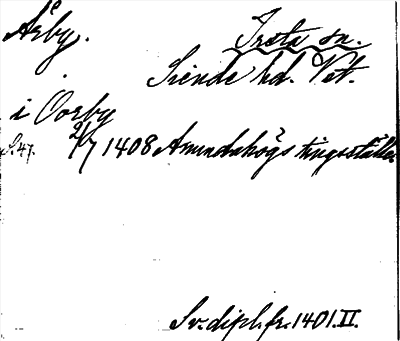 Årby.
Irsta sn.
Siende hd. Vst.
i Oorby
S. 47. 2/7 1408 Amundahögs tingsställe
Sv. dipl. fr. 1401. II.